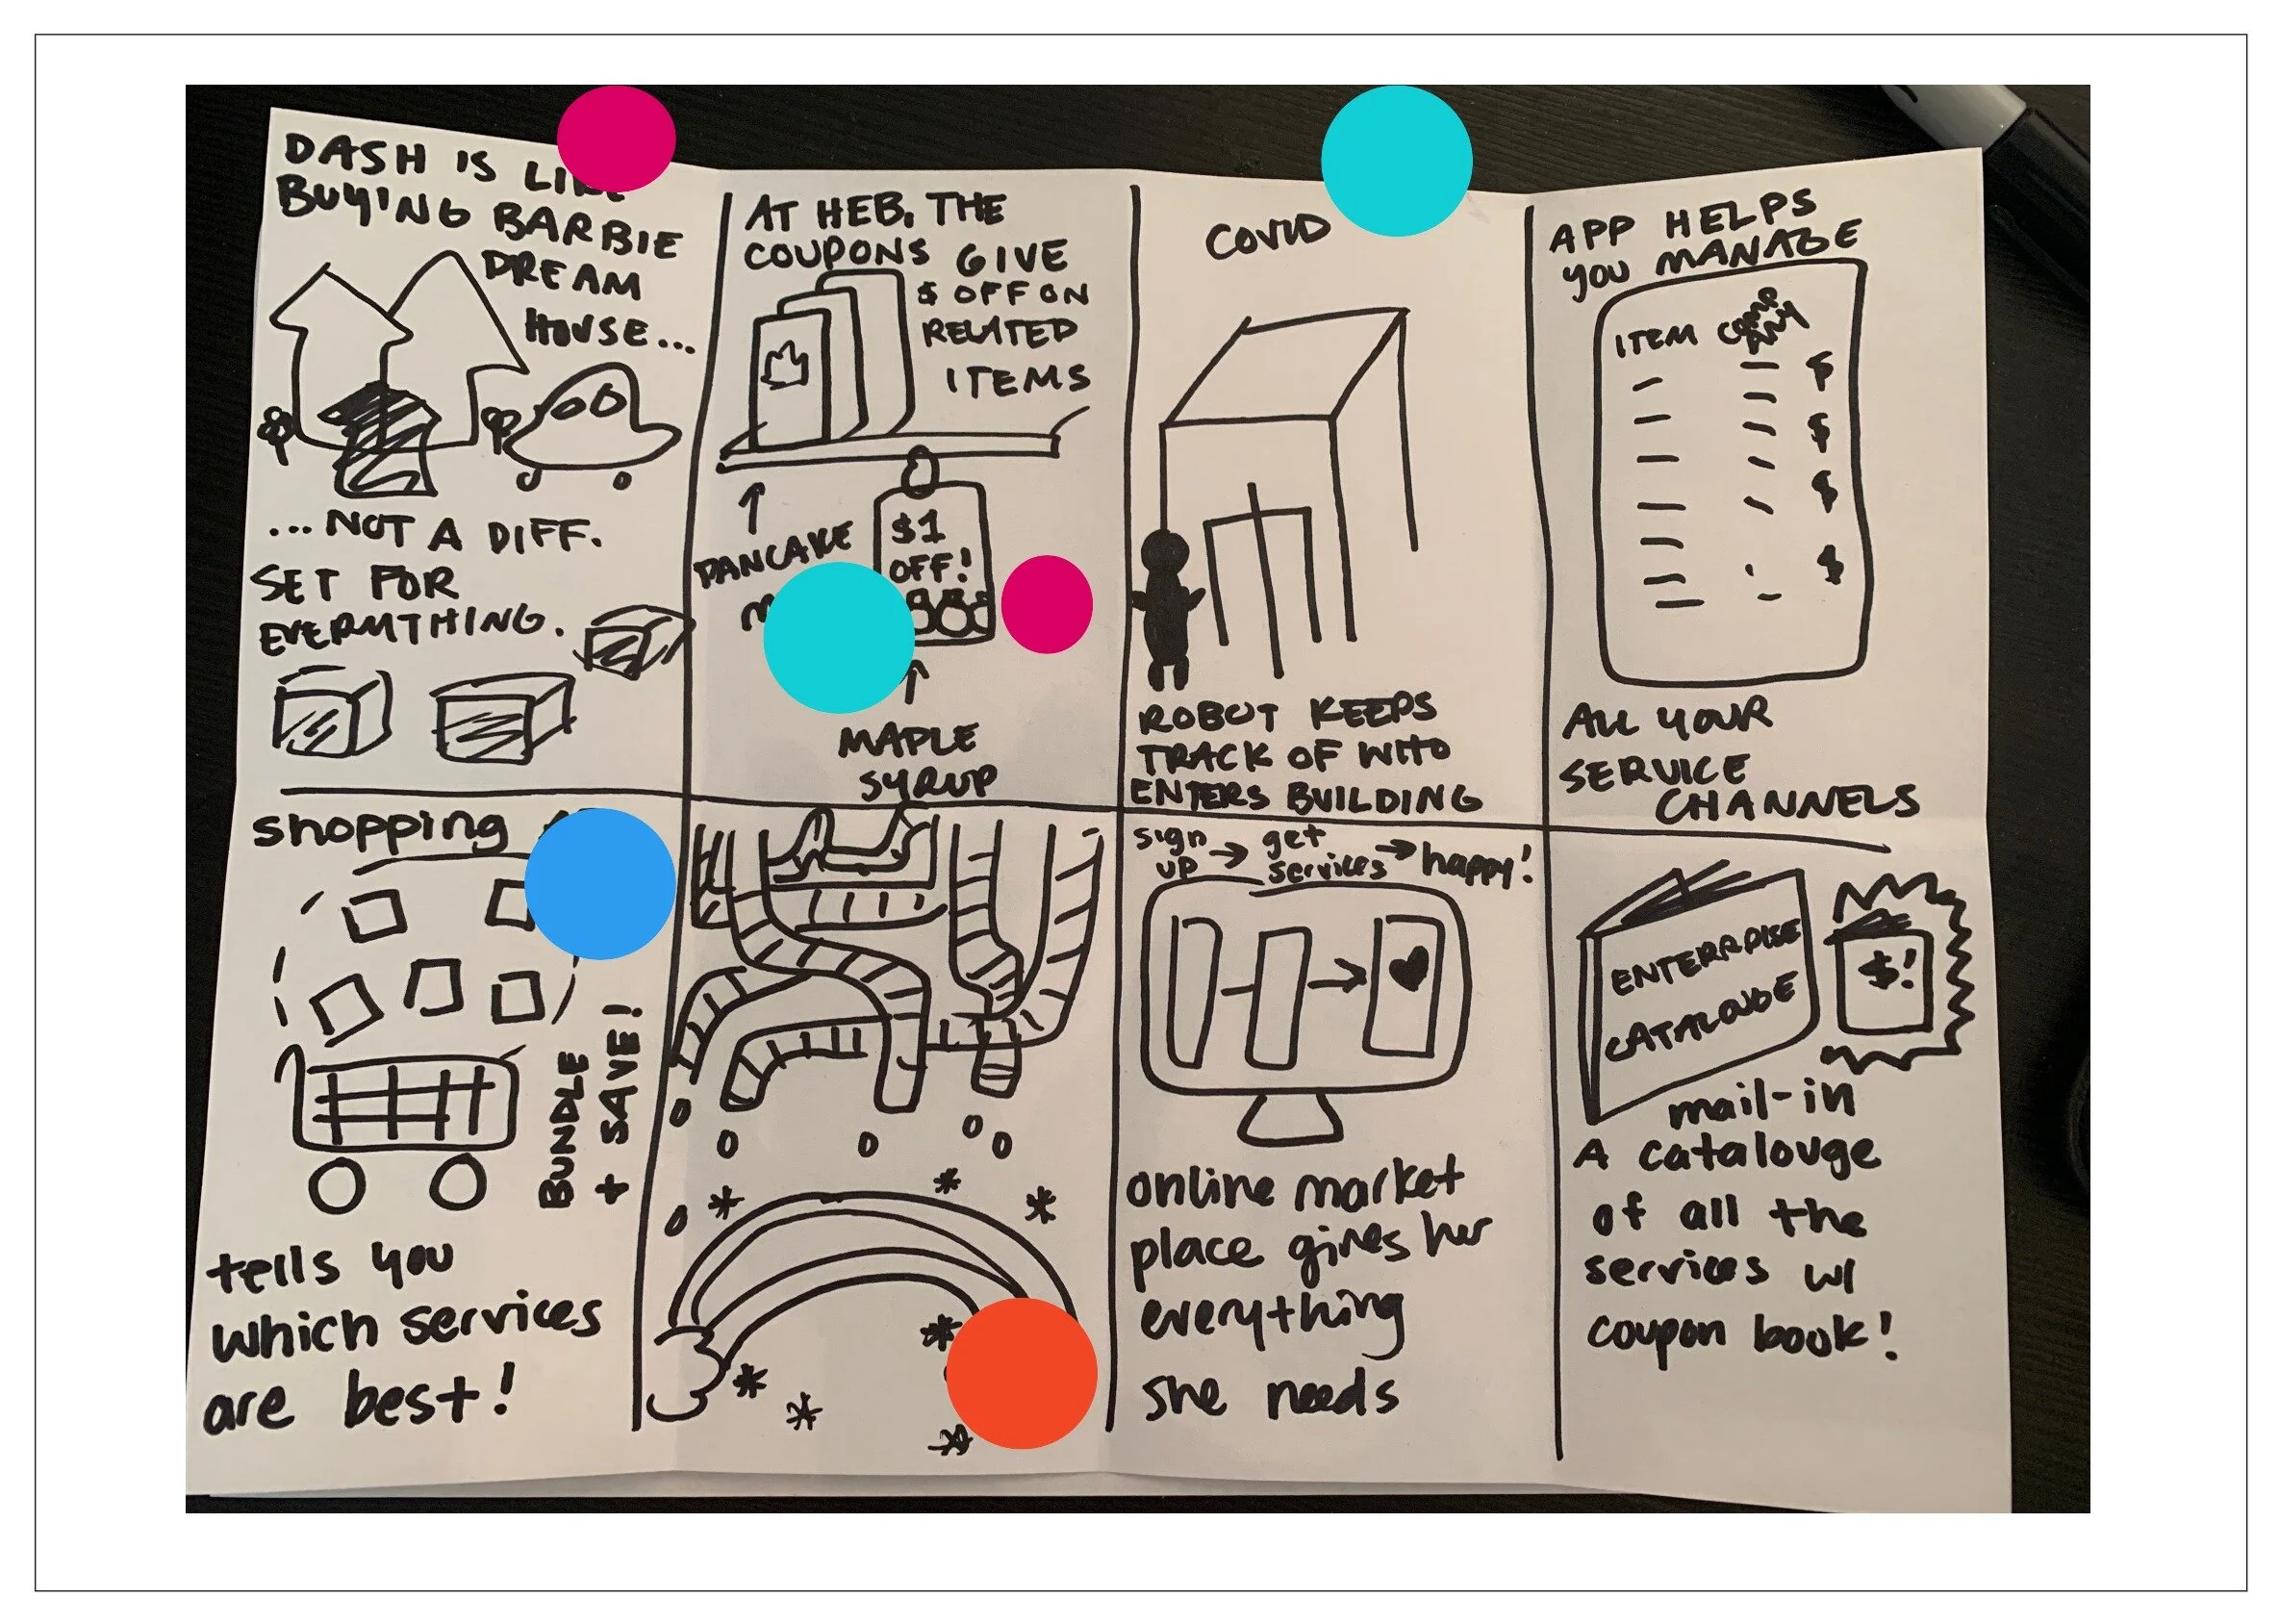 DASH IS
BUYING BARBIE
DREAM
HOUSE...
...NOT A DIFF.
SET FOR
EVERYTHING.
AT HEB, THE
COUPONS GIVE
$ OFF ON
RELATED
ITEMS
PANCAKE
$1
OFF!
MAPLE
SYRUP
COVID
ROBOT KEEPS
TRACK OF WHO
ENTERS BUILDING
APP HELPS
YOU MANAGE
ITEM COMPANY
$
$
$
$
ALL YOUR
SERVICE
CHANNELS
shopping
BUNDLE
+ SAVE!
tells you
which services
are best!
sign up → get services → happy!
online market
place gives her
everything
she needs
ENTERPRISE
CATALOUGE
$!
mail-in
A catalouge
of all the
services w/
coupon book!